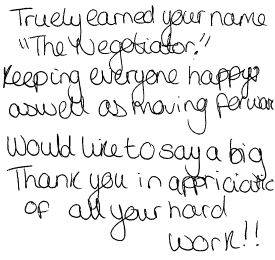 Truely earned your name
"The Negotiator."
Keeping everyone happy
aswell as moving forward
Would like to say a big
Thank you in appriciatic
of all your hard
work!!